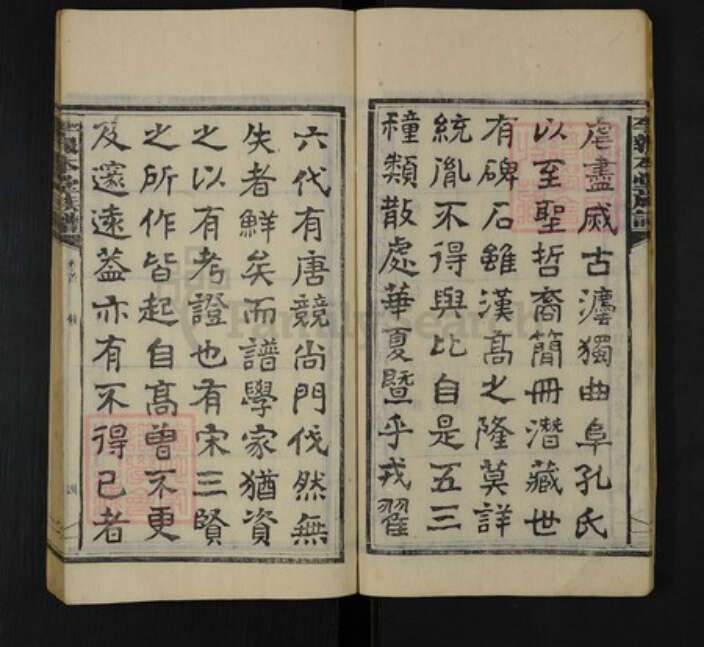 虐盡滅古瀍獨曲阜孔氏
以至聖哲裔簡冊潛藏世
有碑石雖漢高之隆莫詳
統胤不得與比自是五三
種類散處華夏曁乎戎翟
六代有唐競尚門伐然無
失者鮮矣而譜學家猶資
之以有考證也有宋三賢
之所作皆起自高曾不更
及邃遠葢亦有不得已者
李報本堂族譜
FamilySearch